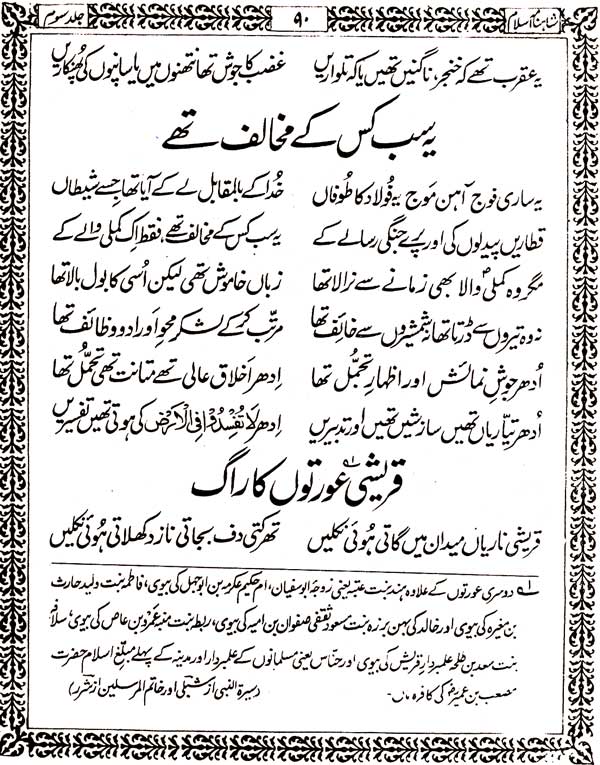 شاہنامۂ اسلام ۹۰ جلد سوم
یہ عقرب تھے کہ خنجر، ناگنیں تھیں یا کہ تلواریں غضب کا جوش تھا نتھنوں میں یا سانپوں کی پھنکاریں
یہ سب کس کے مخالف تھے
یہ ساری فوج آہن موج یہ فولاد کا طوفاں خدا کے بالمقابل لے کے آیا تھا جسے شیطاں
قطاریں پیدلوں کی اور پرے جنگی رسالے کے یہ سب کس کے مخالف تھے، فقط اک کملی والے کے
مگر وہ کملی والا بھی زمانے سے نرالا تھا زباں خاموش تھی لیکن اُسی کا بول بالا تھا
نہ وہ تیروں سے ڈرتا تھا نہ شمشیروں سے خائف تھا مرتب کر کے لشکر محوِ اوراد و وظائف تھا
اُدھر جوشِ نمائش اور اظہارِ تجمّل تھا اِدھر اَخلاق عالی تھے متانت تھی تحمّل تھا
اُدھر تیّاریاں تھیں سازشیں تھیں اور تدبیریں اِدھر لَا تُفْسِدُوْا فِی الْاَرْضِ کی ہوتی تھیں تفسیریں
قریشی عورتوں کا راگ
قریشی ناریاں میدان میں گاتی ہُوئی نکلیں تھرکتی دف بجاتی ناز دکھلاتی ہُوئی نکلیں
؎۱ دوسری عورتوں کے علاوہ ہند بنت عتبہ یعنی زوجۂ ابوسفیان، ام حکیم عکرمہ بن ابوجہل کی بیوی، فاطمہ بنت ولید حارث
بن مغیرہ کی بیوی اور خالد کی بہن برزہ بنت مسعود ثقفی صفوان بن امیہ کی بیوی، ریطہ بنت منبہ عمرو بن عاص کی بیوی، سلافہ
بنت سعد بن طلحہ علمبردارِ قریش کی بیوی اور خناس یعنی مسلمانوں کے علمبردار اور مدینہ کے پہلے مبلّغِ اسلام حضرت
مصعب بن عمیرؓ کی کافرہ ماں۔ (سیرۃ النبی از شبلی اور خاتم المرسلین از شرر)